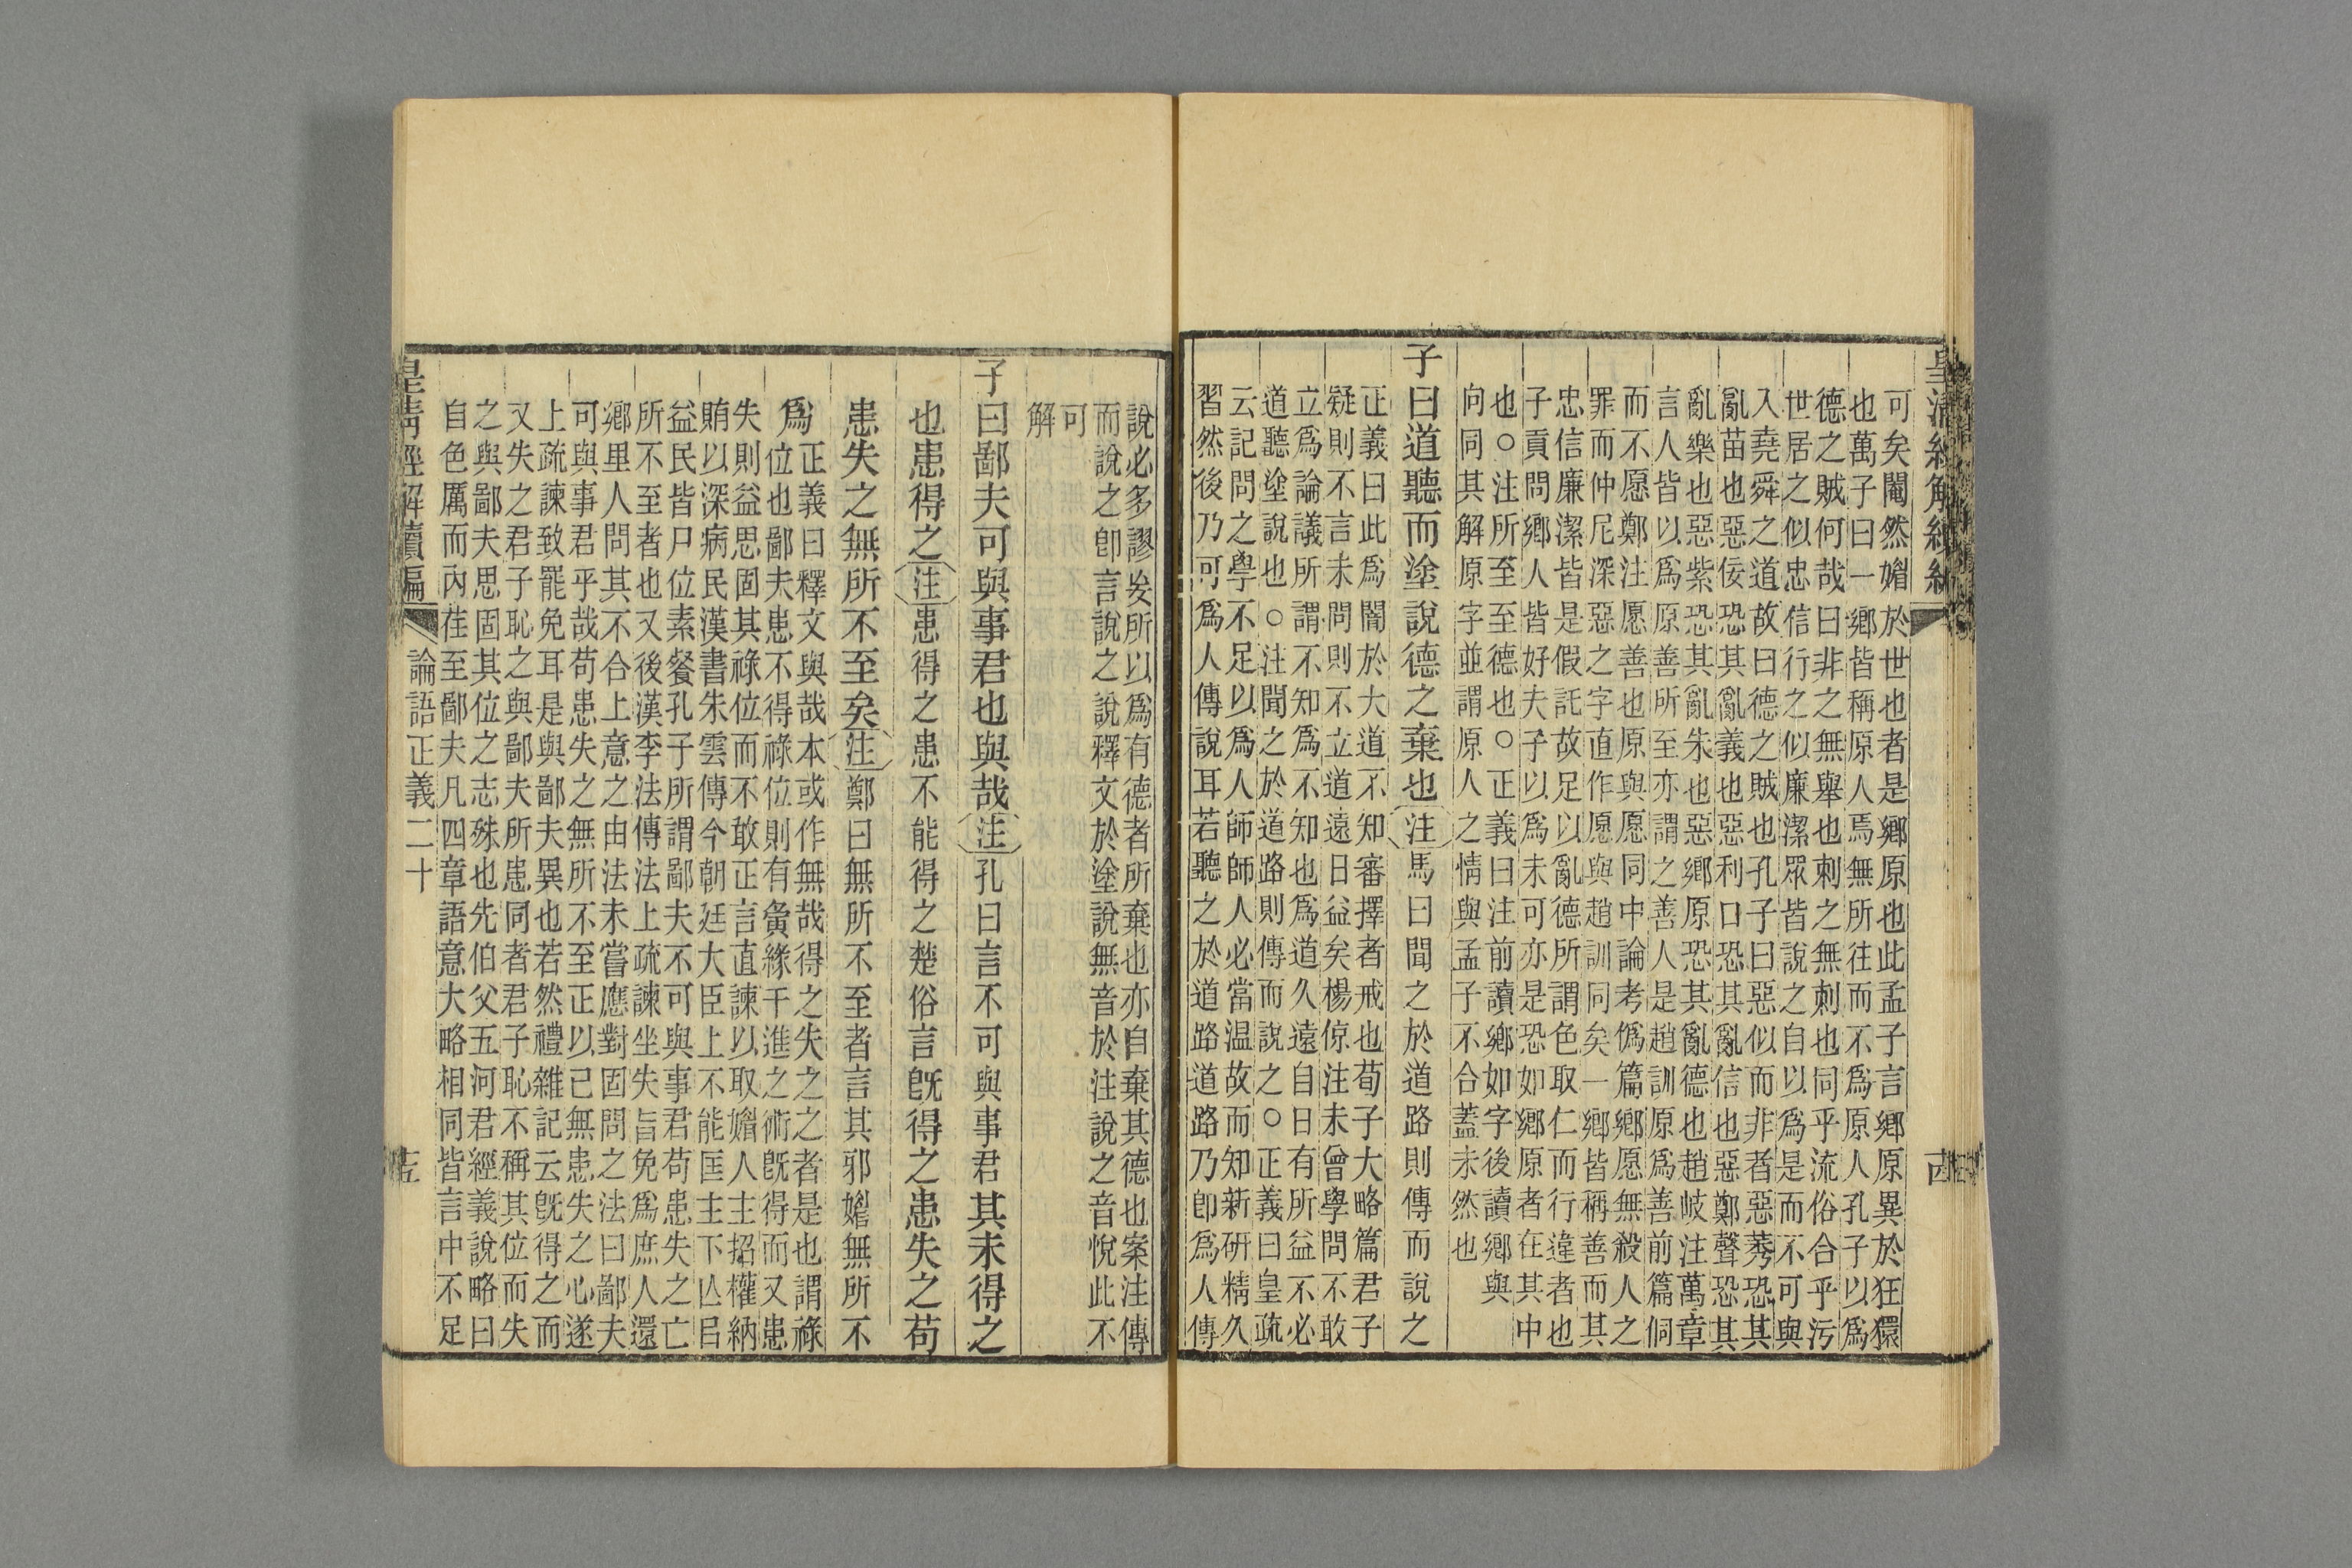 皇清經解續編
四
可矣閹然媚於世也者是鄉原也此孟子言鄉原異於狂獧
也萬子曰一鄉皆稱原人焉無所往而不爲原人孔子以爲
德之賊何哉曰非之無舉也刺之無刺也同乎流俗合乎污
世居之似忠信行之似廉潔眾皆說之自以爲是而不可與
入堯舜之道故曰德之賊也孔子曰惡似而非者惡莠恐其
亂苗也惡佞恐其亂義也惡利口恐其亂信也惡鄭聲恐其
亂樂也惡紫恐其亂朱也惡鄉原恐其亂德也趙岐注萬章
言人皆以爲原善所至亦謂之善人是趙訓原爲善前篇侗
而不愿鄭注愿善也原與愿同中論考僞篇鄉愿無殺人之
罪而仲尼深惡之字直作愿與趙訓同矣一鄉皆稱善而其
忠信廉潔皆是假託故足以亂德所謂色取仁而行違者也
子貢問鄉人皆好夫子以爲未可亦是恐如鄉原者在其中
也○注所至至德也○正義曰注前讀鄉如字後讀鄉與
向同其解原字並謂原人之情與孟子不合蓋未然也
子曰道聽而塗說德之棄也注馬曰聞之於道路則傳而說之
正義曰此爲聞於大道不知審擇者戒也荀子大略篇君子
疑則不言未問則不立道遠日益矣楊倞注未曾學問不敢
立爲論議所謂不知爲不知也爲道久遠自日有所益不必
道聽塗說也○注聞之於道路則傳而說之○正義曰皇疏
云記問之學不足以爲人師師人必當温故而知新研精久
習然後乃可爲人傳說耳若聽之於道路道路乃卽爲人傳
說必多謬妄所以爲有德者所棄也亦自棄其德也案注傳
而說之卽言說之說釋文於塗說無音於注說之音悅此不
可
解
子曰鄙夫可與事君也與哉注孔曰言不可與事君其未得之
也患得之注患得之患不能得之楚俗言旣得之患失之苟
患失之無所不至矣注鄭曰無所不至者言其邪媚無所不
爲
正義曰釋文與哉本或作無哉得之失之之者是也謂祿
位也鄙夫患不得祿位則有夤緣干進之術旣得而又患
失則益思固其祿位而不敢正言直諫以取媚人主招權納
賄以深病民漢書朱雲傳今朝廷大臣上不能匡主下亾㠯
益民皆尸位素餐孔子所謂鄙夫不可與事君苟患失之亡
所不至者也又後漢李法傳法上疏諫坐失旨免爲庶人還
鄉里人問其不合上意之由法未嘗應對固問之法曰鄙夫
可與事君乎哉苟患失之無所不至正以己無患失之心遂
上疏諫致罷免耳是與鄙夫異也若然禮雜記云旣得之而
又失之君子恥之與鄙夫所患同者君子恥不稱其位而失
之與鄙夫思固其位之志殊也先伯父五河君經義說略曰
自色厲而內荏至鄙夫凡四章語意大略相同皆言中不足
皇清經解續編
論語正義二十
十五